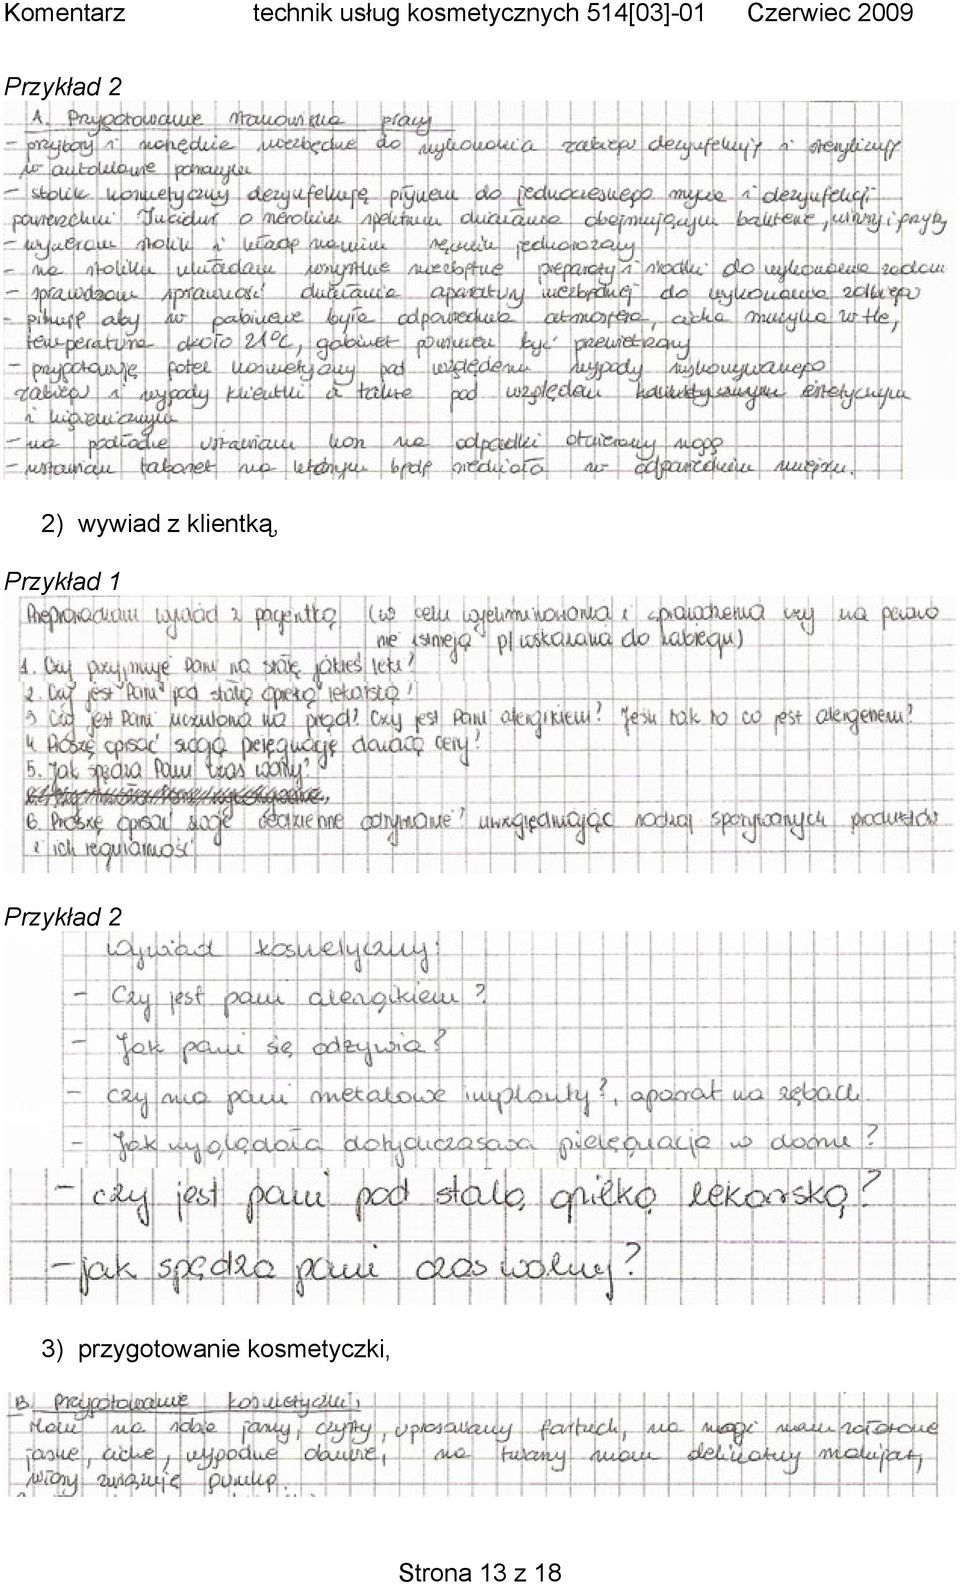 Komentarz technik usług kosmetycznych 514[03]-01 Czerwiec 2009
Przykład 2
A. Przygotowanie stanowiska pracy
- przybory i narzędzia niezbędne do wykonania zabiegu dezynfekuję i sterylizuję
w autoklawie parowym
- stolik kosmetyczny dezynfekuję płynem do jednoczesnego mycia i dezynfekcji
powierzchni Incidur o szerokim spektrum działania obejmującym bakterie, wirusy i grzyby
- wycieram stolik i kładę na nim ręcznik jednorazowy
- na stoliku układam wszystkie niezbędne preparaty i środki do wykonania zabiegu
- sprawdzam sprawność działania aparatury niezbędnej do wykonania zabiegu
- pilnuję aby w gabinecie była odpowiednia atmosfera, cicha muzyka w tle,
temperatura około 21°C, gabinet powinien być przewietrzony
- przygotowuję fotel kosmetyczny pod względem wygody wykonywanego
zabiegu i wygody klientki a także pod względem estetycznym
i higienicznym
- na podłodze ustawiam kosz na odpadki otwierany nogą
- ustawiam taboret na którym będę siedziała w odpowiednim miejscu.
2) wywiad z klientką,
Przykład 1
Przeprowadzam wywiad z pacjentką (w celu wyeliminowania i sprawdzenia czy na pewno
nie istnieją p/wskazania do zabiegu)
1. Czy przyjmuje Pani na stałę jakieś leki?
2. Czy jest Pani pod stałą opieką lekarską?
3. Czy jest Pani uczulona na prąd? Czy jest Pani alergikiem? Jeśli tak to co jest alergenem?
4. Proszę opisać swoją pielęgnację dawaną cery?
5. Jak spędza Pani czas wolny?
6. Proszę opisać swoje codzienne odżywianie? uwzględniając rodzaj spożywanych produktów
i ich regularność
Przykład 2
Wywiad kosmetyczny:
- Czy jest pani alergikiem?
- Jak pani się odżywia?
- czy ma pani metalowe implanty?, aparat na zębach
- Jak wyglądała dotychczasowa pielęgnacja w domu?
- czy jest pani pod stałą opieką lekarską?
- jak spędza pani czas wolny?
3) przygotowanie kosmetyczki,
B. Przygotowanie kosmetyczki:
Mam na sobie jasny, czysty, uprasowany fartuch, na nogi mam założone
jasne, ciche, wygodne obuwie, na twarzy mam delikatny makijaż,
włosy związuję gumką.
Strona 13 z 18